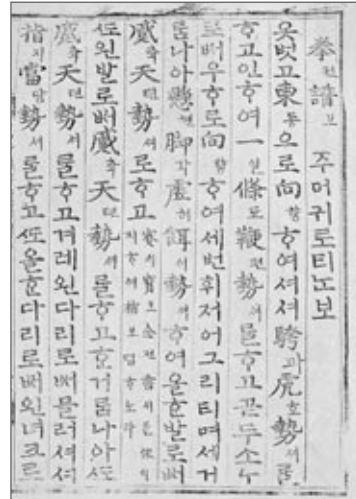 拳권譜보 주머귀로티ᄂᆞᆫ보
옷벗고東동으로向향ᄒᆞ여셔셔跨과虎호勢셰ᄅᆞᆯ
ᄒᆞ고인ᄒᆞ여一일條됴鞭편勢셰ᄅᆞᆯᄒᆞ고ᄭᅳᆫ두소ᄂᆞ
로뻐우흐로向향ᄒᆞ여세번휘저어그리티며세거
름나아懸현脚각虛허餌이勢셰ᄒᆞ여올ᄒᆞᆫ발로뻐
蹙축天텬勢셰로ᄒᆞ고
ᄯᅩ왼발로뻐蹙축天텬勢셰ᄅᆞᆯᄒᆞ고ᄒᆞᆫ거름나아ᄯᅩ
蹙축天텬勢셰ᄅᆞᆯᄒᆞ고겨레왼다리로뻐믈러셔셔
指지當당勢셰ᄅᆞᆯᄒᆞ고ᄯᅩ올ᄒᆞᆫ다리로뻐왼녀크로